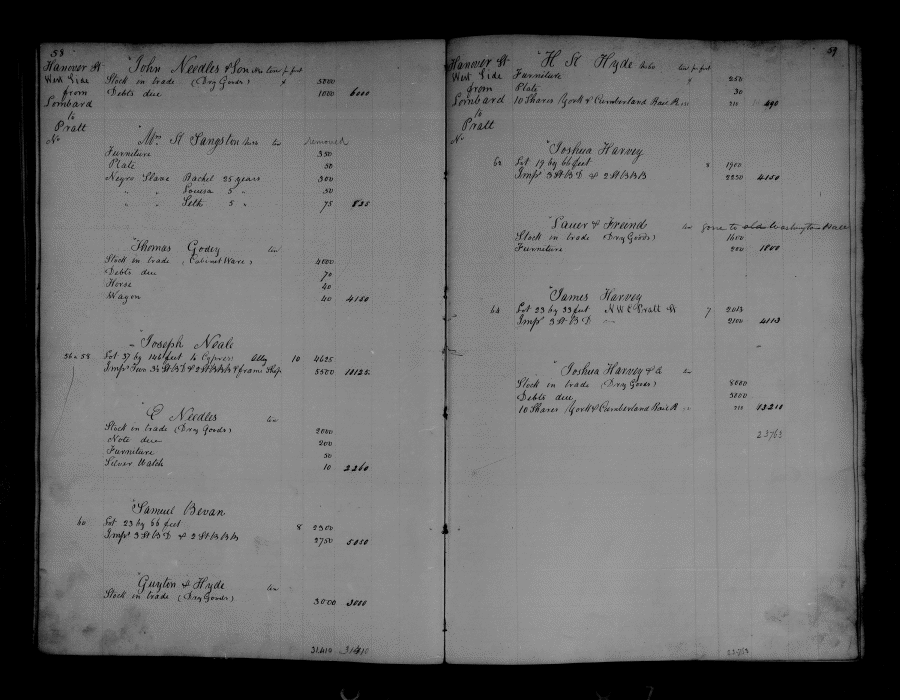 58
Hanover St
West Side
from
Lombard
to
Pratt
No
John Needles & Son ten
Stock in trade (Dry Goods) 5000
Debts due 1000 6000
Mrs H Sangston ten removed
Furniture 350
Plate 50
Negro Slave Rachel 25 years 300
" " Louisa 5 " 50
" " Seth 5 " 75 825
Thomas Godey ten
Stock in trade (Cabinet Ware) 4000
Debts due 70
Horse 40
Wagon 40 4150
Joseph Neale
56 & 58 Lot 37 by 146 feet to Cypress Alley 10 4625
Imps Two 3½ St B D & 2 St B B B & frame Shop 5500 10125
C Needles ten
Stock in trade (Dry Goods) 2000
Note due 200
Furniture 50
Silver Watch 10 2260
Samuel Bevan
60 Lot 23 by 66 feet 8 2300
Imps 3 St B D & 2 St B B B 2750 5050
Guyton & Hyde ten
Stock in trade (Dry Goods) 3000 3000
31410 31410
59
Hanover St
West Side
from
Lombard
to
Pratt
No
H K Hyde ten
Furniture 250
Plate 30
10 Shares York & Cumberland Rail R 210 490
Joshua Harvey
62 Lot 19 by 66 feet 8 1900
Imps 3 St B D & 2 St B B B 2250 4150
Lauer & Freund ten gone to old Washington Hall
Stock in trade (Dry Goods) 1600
Furniture 200 1800
James Harvey
64 Lot 23 by 33 feet N W C Pratt St 7 2013
Imps 3 St B D 2100 4113
Joshua Harvey & Co ten
Stock in trade (Dry Goods) 8000
Debts due 5000
10 Shares York & Cumberland Rail R 210 13210
23763
23763